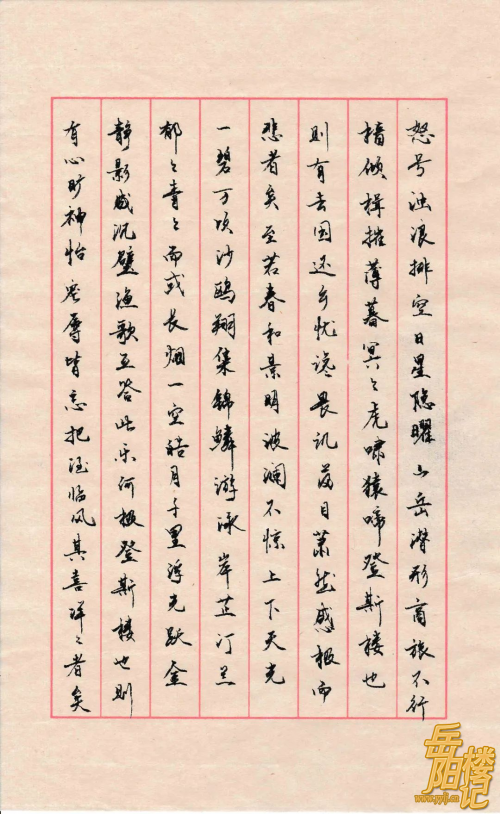 怒号浊浪排空日星隐曜山岳潜形商旅不行
樯倾楫摧薄暮冥〻虎啸猿啼登斯楼也
则有去国还乡忧谗畏讥满目萧然感极而
悲者矣至若春和景明波澜不惊上下天光
一碧万顷沙鸥翔集锦鳞游泳岸芷汀兰
郁〻青〻而或长烟一空皓月千里浮光跃金
静影咸沉璧渔歌互答此乐何极登斯楼也则
有心旷神怡宠辱皆忘把酒临风其喜洋〻者矣
岳阳楼记
www.yylj.cn